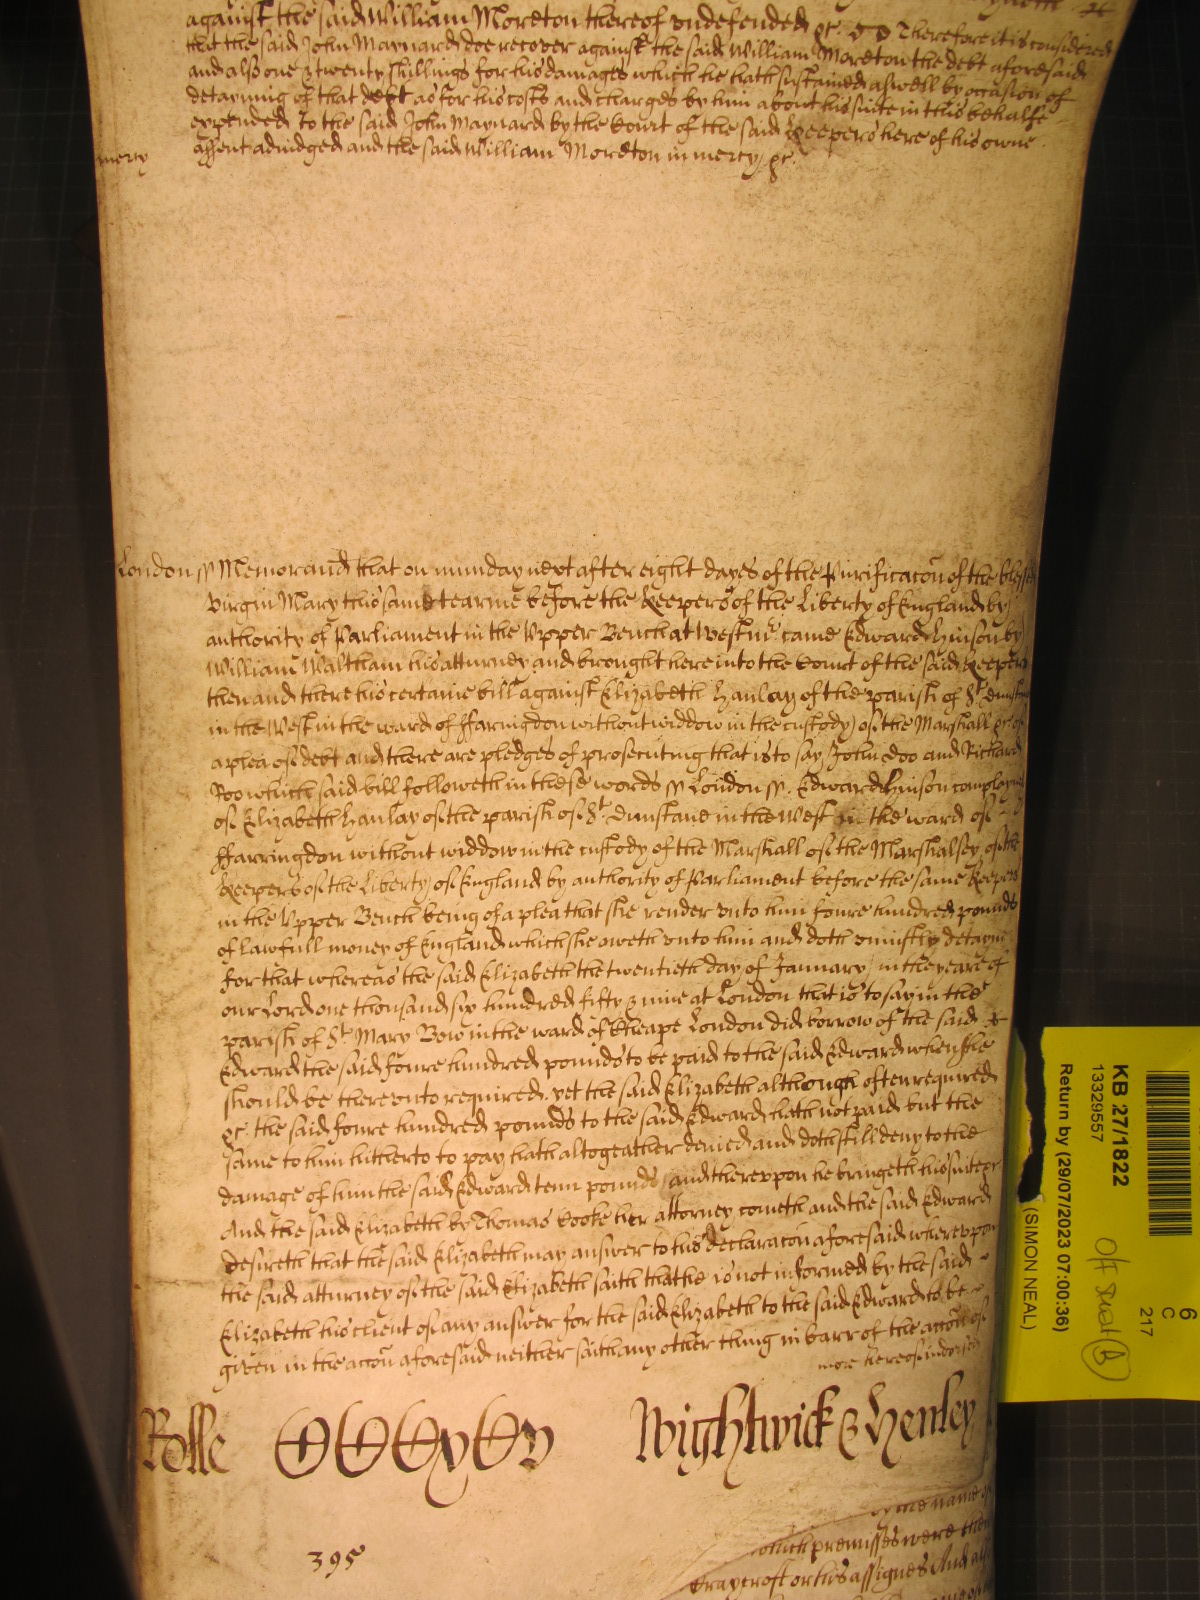 against the said William Moreton thereof vndefended &c. Therefore it is considered
that the said John Maynard doe recover against the said William Moreton the debt aforesaid
and also one & twenty shillings for his damages which he hath susteined aswell by occasion of
detayning of that debt as for his costs and charges by him about his suite in this behalfe
expended to the said John Maynard by the Court of the said Keepers here of his owne
assent adiudged and the said William Moreton in mercy &c.
mercy
London ss Memorand that on munday next after eight dayes of the Purificacon of the blessed
virgin Mary this same tearme before the Keepers of the Liberty of England by
authority of Parliament in the Vpper Bench at Westmr came Edward Hinson by
William Waltham his atturney and brought here into the Court of the said Keepers
then and there his certaine bill against Elizabeth Hanlay of the parish of St. Dunstan
in the West in the ward of ffarringdon without widdow in the custody of the Marshall &c of
a plea of debt and there are pledges of prosecuting that is to say John Doo and Richard
Roo which said bill followeth in these words ss London ss. Edward Hinson complayneth
of Elizabeth Hanlay of the parish of St. Dunstane in the West in the ward of
ffarringdon without widdow in the custody of the Marshall of the Marshalsey of the
Keepers of the Liberty of England by authority of Parliament before the same Keepers
in the Vpper Bench being of a plea that she render vnto him foure hundred pounds
of lawfull money of England which she oweth vnto him and doth vniustly detayne
for that whereas the said Elizabeth the twentieth day of January in the yeare of
our Lord one thousand six hundred fifty & nine at London that is to say in the
parish of St. Mary Bow in the ward of Cheape London did borrow of the said
Edward the said foure hundred pounds to be paid to the said Edward when she
should be therevnto required. yet the said Elizabeth although often required
&c. the said foure hundred pounds to the said Edward hath not paid but the
same to him hitherto to pay hath altogeather denied and doth still deny to the
damage of him the said Edward tenn pounds and therevpon he bringeth his suite &c
And the said Elizabeth by Thomas Cooke her attorney cometh and the said Edward
desireth that the said Elizabeth may answer to his declaracon aforesaid wherevpon
the said atturney of the said Elizabeth saith that he is not informed by the said
Elizabeth his client of any answer for the said Elizabeth to the said Edward to be
given in the accon aforesaid neither saith any other thing in barr of the accon of
more hereof indorsed
Rolle Wightwick & Henley
395
by the name of
which premisses were then
Craycroft or his assignes And at
6
C
217
KB 27/1822
13329557
Return by (29/07/2023 07:00:36)
(SIMON NEAL)